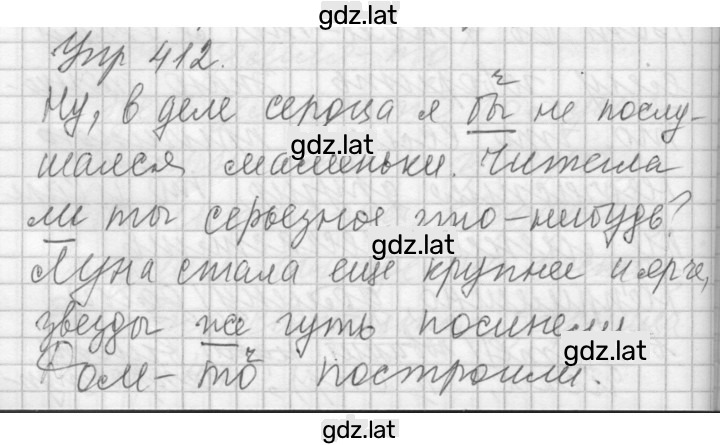 gdz.lat
Упр 412.
ч
Ну, в деле сердца я бы не послу-
gdz.lat
шался маменьки. Читала
ли ты серьезное что-нибудь?
gdz.lat
Луна стала еще крупнее и ярче,
звезды же чуть посинели.
gdz.lat
ч
Дом-то построили.
gdz.lat